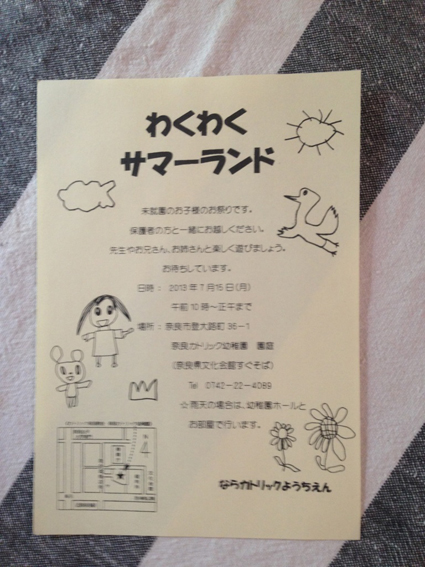 わくわく
サマーランド
未就園のお子様のお祭りです。
保護者の方と一緒にお越しください。
先生やお兄さん、お姉さんと楽しく遊びましょう。
お待ちしています。
日時： 2013年7月15日(月)
午前10時～正午まで
場所：奈良市登大路町36－1
奈良カトリック幼稚園 園庭
(奈良県文化会館すぐそば)
Tel 0742－22－4089
☆雨天の場合は、幼稚園ホールと
お部屋で行います。
ならカトリックようちえん